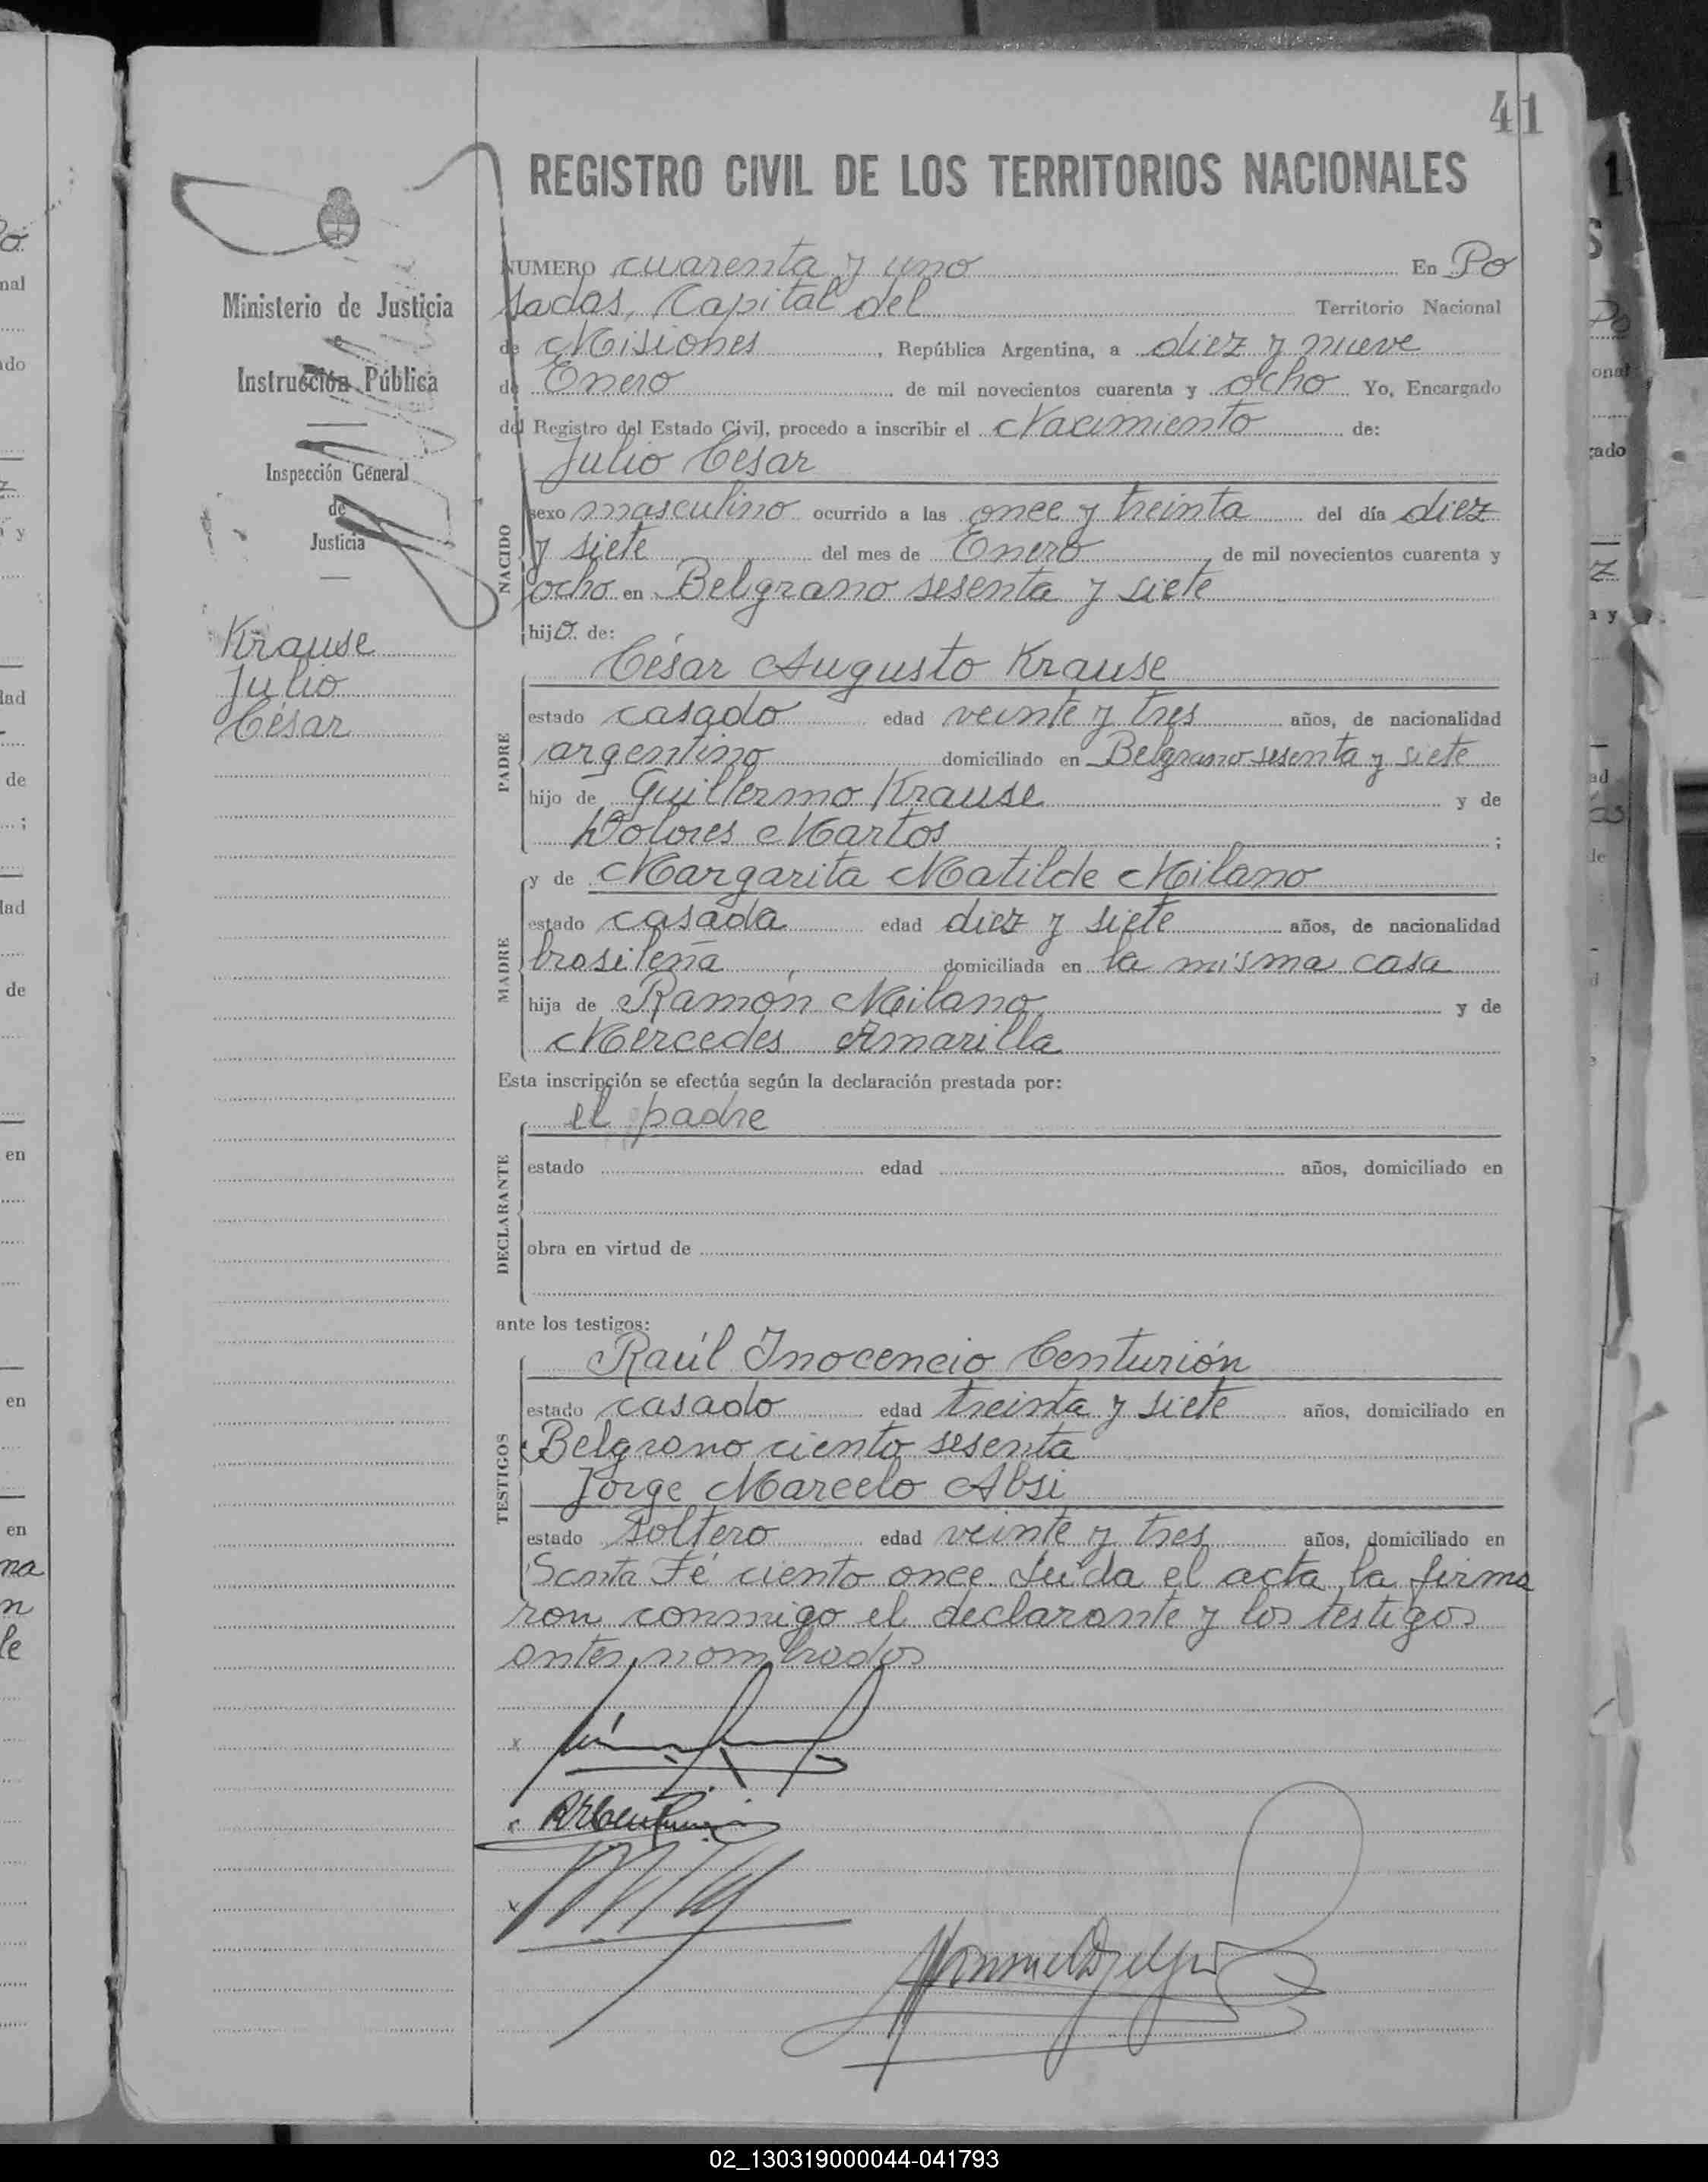 41
REGISTRO CIVIL DE LOS TERRITORIOS NACIONALES
Ministerio de Justicia
e
Instrucción Pública
Inspección General
de
Justicia
Krause
Julio
César
NUMERO cuarenta y uno En Po
sadas, Capital del Territorio Nacional
de Misiones, República Argentina, a diez y nueve
de Enero de mil novecientos cuarenta y ocho Yo, Encargado
del Registro del Estado Civil, procedo a inscribir el Nacimiento de:
Julio César
NACIDO
sexo masculino ocurrido a las once y treinta del día diez
y siete del mes de Enero de mil novecientos cuarenta y
ocho en Belgrano sesenta y siete
hijo de:
César Augusto Krause
PADRE
estado casado edad veinte y tres años, de nacionalidad
argentino domiciliado en Belgrano sesenta y siete
hijo de Guillermo Krause y de
Dolores Martos ;
y de Margarita Matilde Milano
MADRE
estado casada edad diez y siete años, de nacionalidad
brasileña domiciliada en la misma casa
hija de Ramón Milano y de
Mercedes Amarilla
Esta inscripción se efectúa según la declaración prestada por:
el padre
DECLARANTE
estado edad años, domiciliado en
obra en virtud de
ante los testigos:
Raúl Inocencio Centurión
TESTIGOS
estado casado edad treinta y siete años, domiciliado en
Belgrano ciento sesenta
Jorge Marcelo Absi
estado soltero edad veinte y tres años, domiciliado en
Santa Fé ciento once. Leída el acta la firma
ron conmigo el declarante y los testigos
antes nombrados
02_130319000044-041793